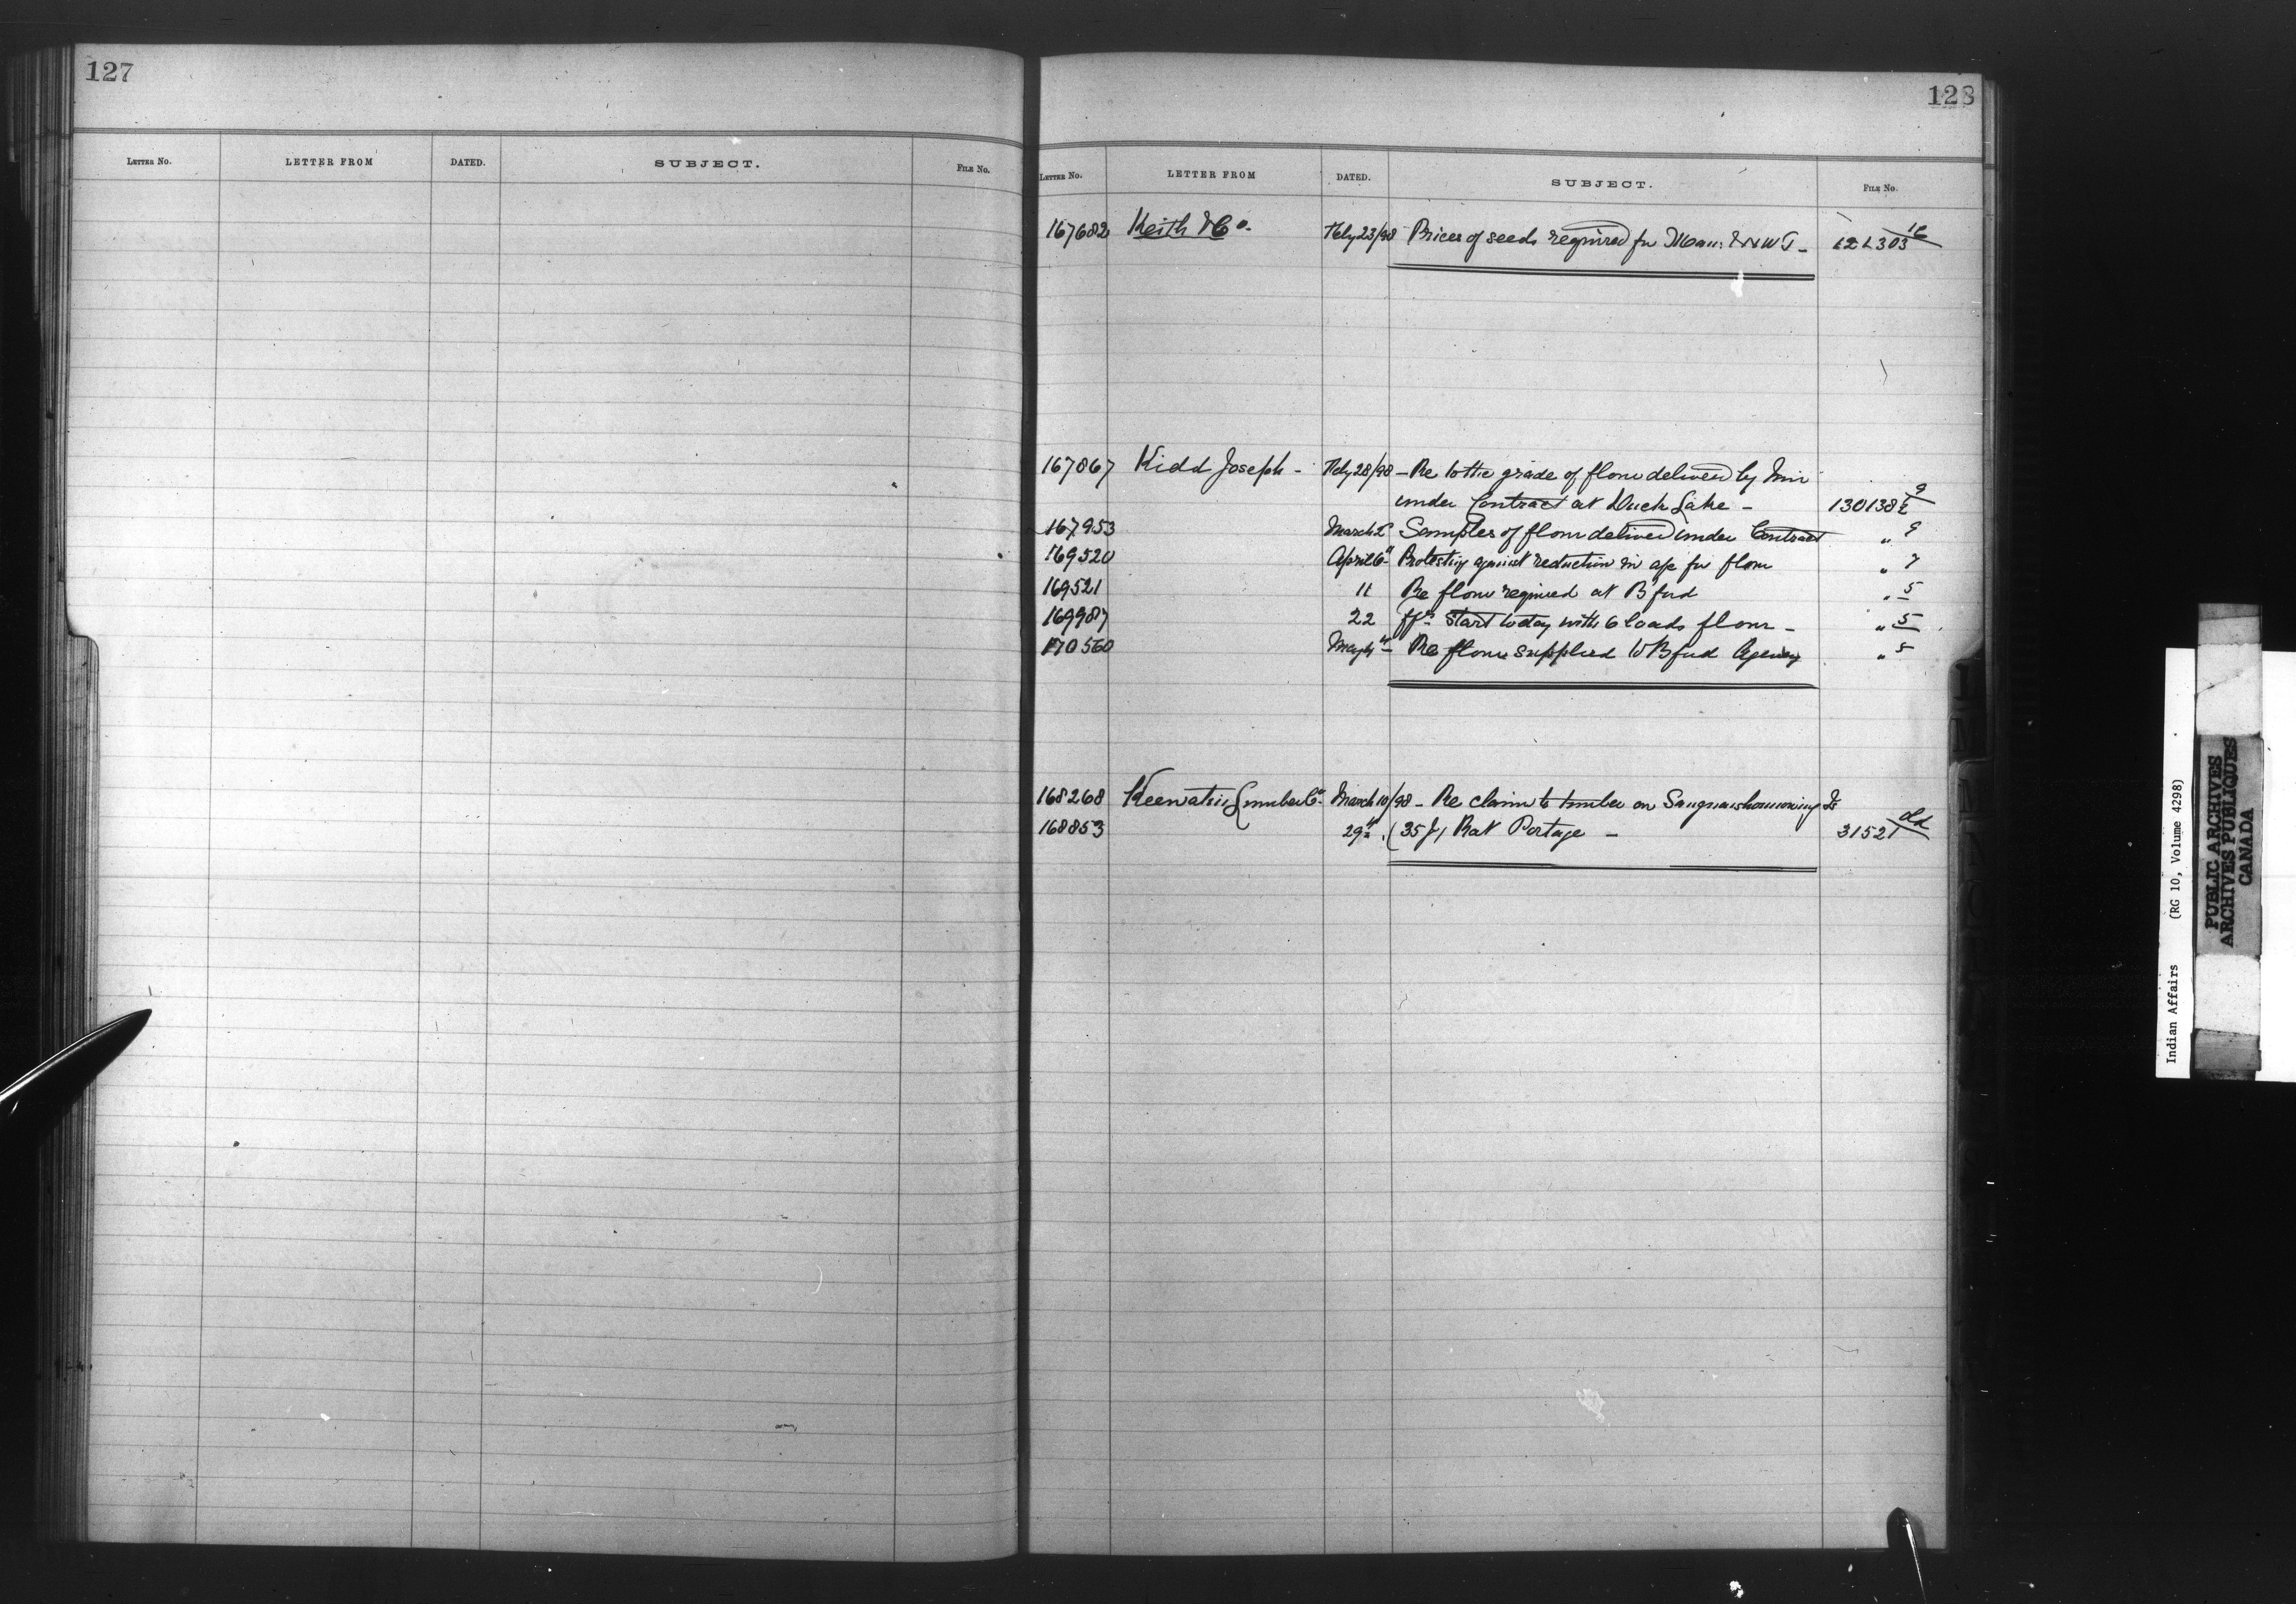 127
LETTER No. LETTER FROM DATED. SUBJECT. FILE No.
128
LETTER No. LETTER FROM DATED. SUBJECT. FILE No.
167682 Keith & Co. Feby 23/98 Prices of seeds required for Man: & NWT - 121303 16
167867 Kidd Joseph - Feby 28/98 - Re to the grade of flour delivered by him
under Contract at Duck Lake - 130138 9
167953 March 2 Samples of flour delivered under Contract " 9
169520 April 6th Protesting against reduction in a/c for flour " 9
169521 11 Re flour required at B'ford " 5
169987 22 start today with 6 loads flour - " 5
170560 May 4th - Re flour supplied to B'ford Agency " 5
168268 Keewatin Lumber Co. March 10/98 - Re claim to timber on Is
168853 29th (35 J) Rat Portage - 31521 old
Indian Affairs (RG 10, Volume 4298)
PUBLIC ARCHIVES
ARCHIVES PUBLIQUES
CANADA